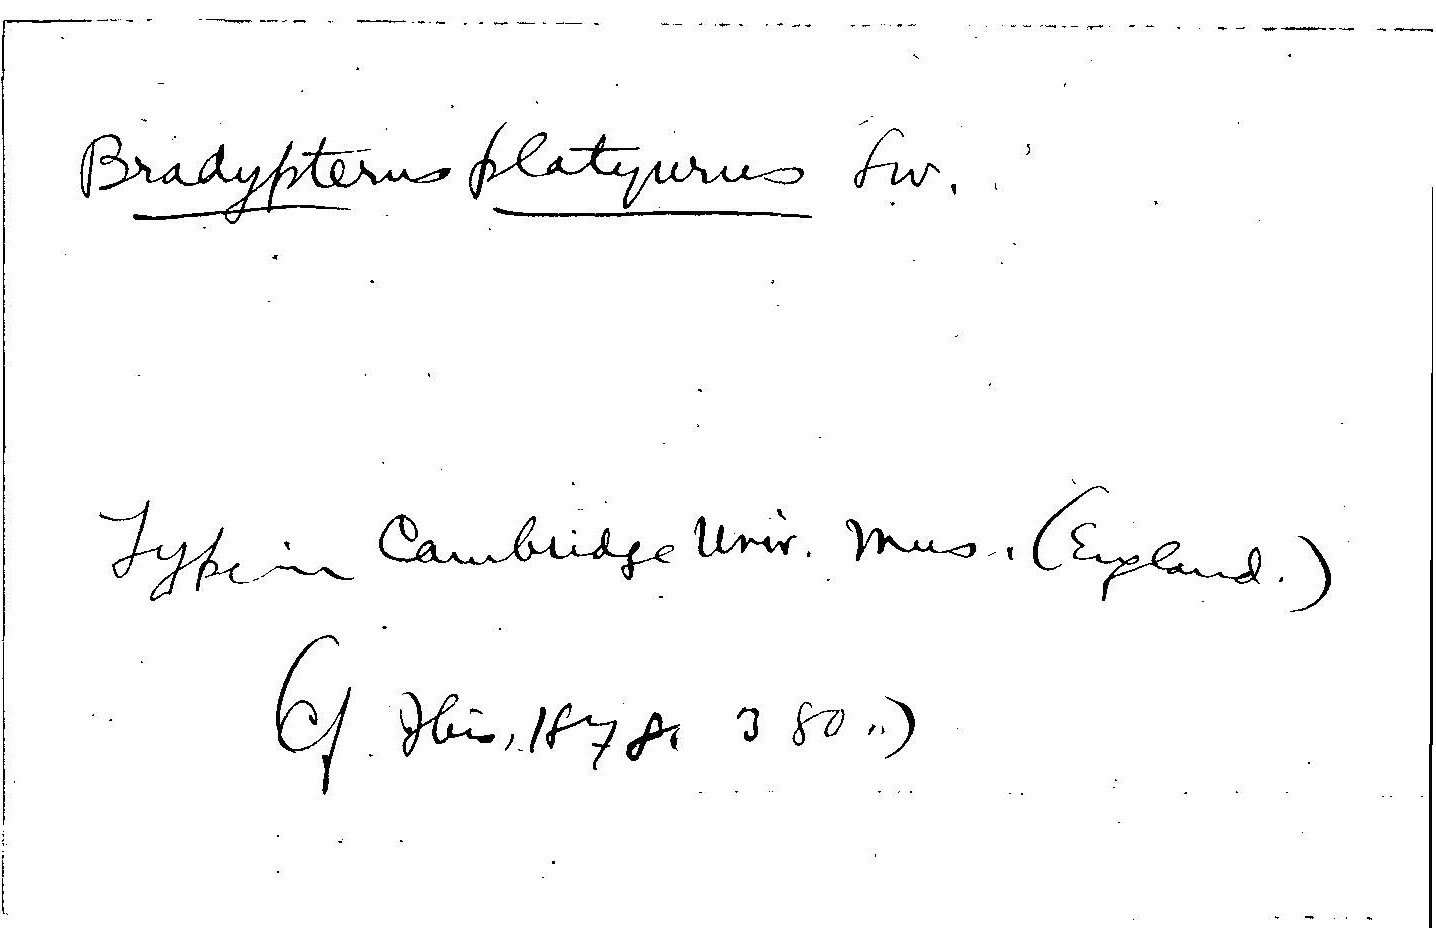 Bradypterus platyurus Sw.
Type in Cambridge Univ. Mus. (England.)
(Cf. Ibis, 1878, 380.)